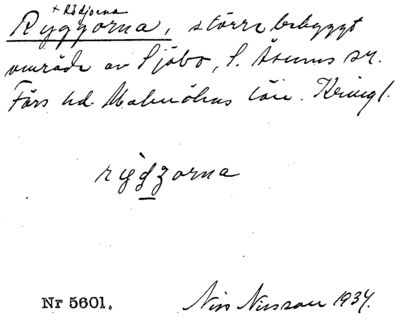 + Rödjorna
Ryggorna, större bebyggt
område av Sjöbo, S. Åsums sn.
Färs hd. Malmöhus län. Kringl.
rygzorna
Nr 5601. Nils Nilsson 1934.